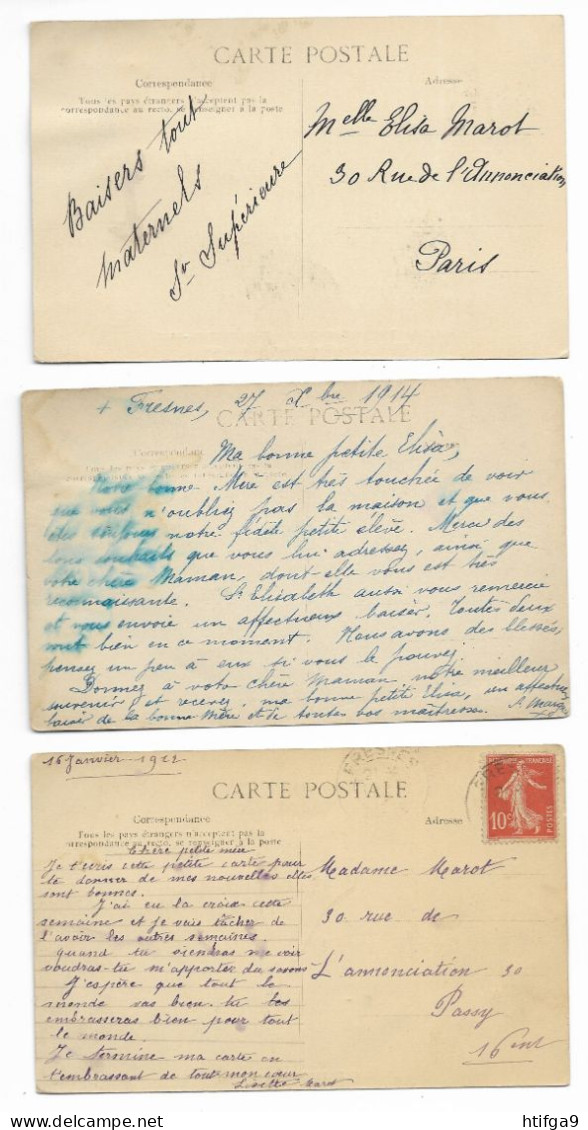 CARTE POSTALE
Correspondance
Adresse
Tous les pays étrangers n'acceptent pas la
correspondance au recto, se renseigner à la poste
Baisers tout
maternels
Sr Supérieure
Melle Elisa Marot
30 Rue de l'Annonciation
Paris
+ Fresnes, 27 Xbre 1914
CARTE POSTALE
Correspondance
Ma bonne petite Elisa,
Notre bonne Mère est très touchée de voir
que vous n'oubliez pas la maison et que vous
êtes toujours notre fidèle petite élève. Merci des
bons souhaits que vous lui adressez, ainsi que
votre chère Maman, dont elle vous est très
reconnaissante. Sr Elisabeth aussi vous remercie
et vous envoie un affectueux baiser. Toutes deux
vont bien en ce moment. Nous avons des blessés,
pensez un peu à eux si vous le pouvez.
Donnez à votre chère Maman notre meilleur
souvenir et recevez, ma bonne petite Elisa, un affectueux
baiser de la bonne Mère et de toutes vos maîtresses.
16 Janvier - 1912
FRESNES
CARTE POSTALE
Correspondance
Adresse
Tous les pays étrangers n'acceptent pas la
correspondance au recto, se renseigner à la poste
REPUBLIQUE FRANÇAISE
10c
POSTES
Chère petite mère
Je t'écris cette petite carte pour
te donner de mes nouvelles elles
sont bonnes.
J'ai eu la croix cette
semaine et je vais tâcher de
l'avoir les autres semaines.
quand tu viendras me voir
voudras-tu m'apporter du savon
J'espère que tout le
monde vas bien. tu les
embrasseras bien pour tout
le monde.
Je termine ma carte en
t'embrassant de tout mon cœur
Madame Marot
30 rue de
L'annonciation 30
Passy
16em
Delcampe.net
htifga9